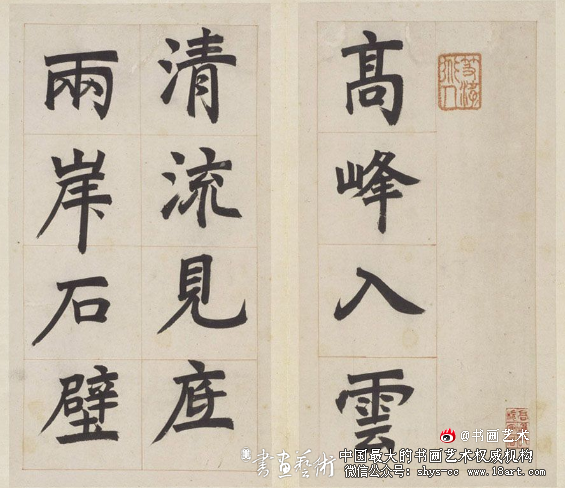 髙峰入雲
清流見底
兩岸石壁
@书画艺术
書畫藝術
中国最大的书画艺术权威机构
微信公众号: shys-cc www.18art.com